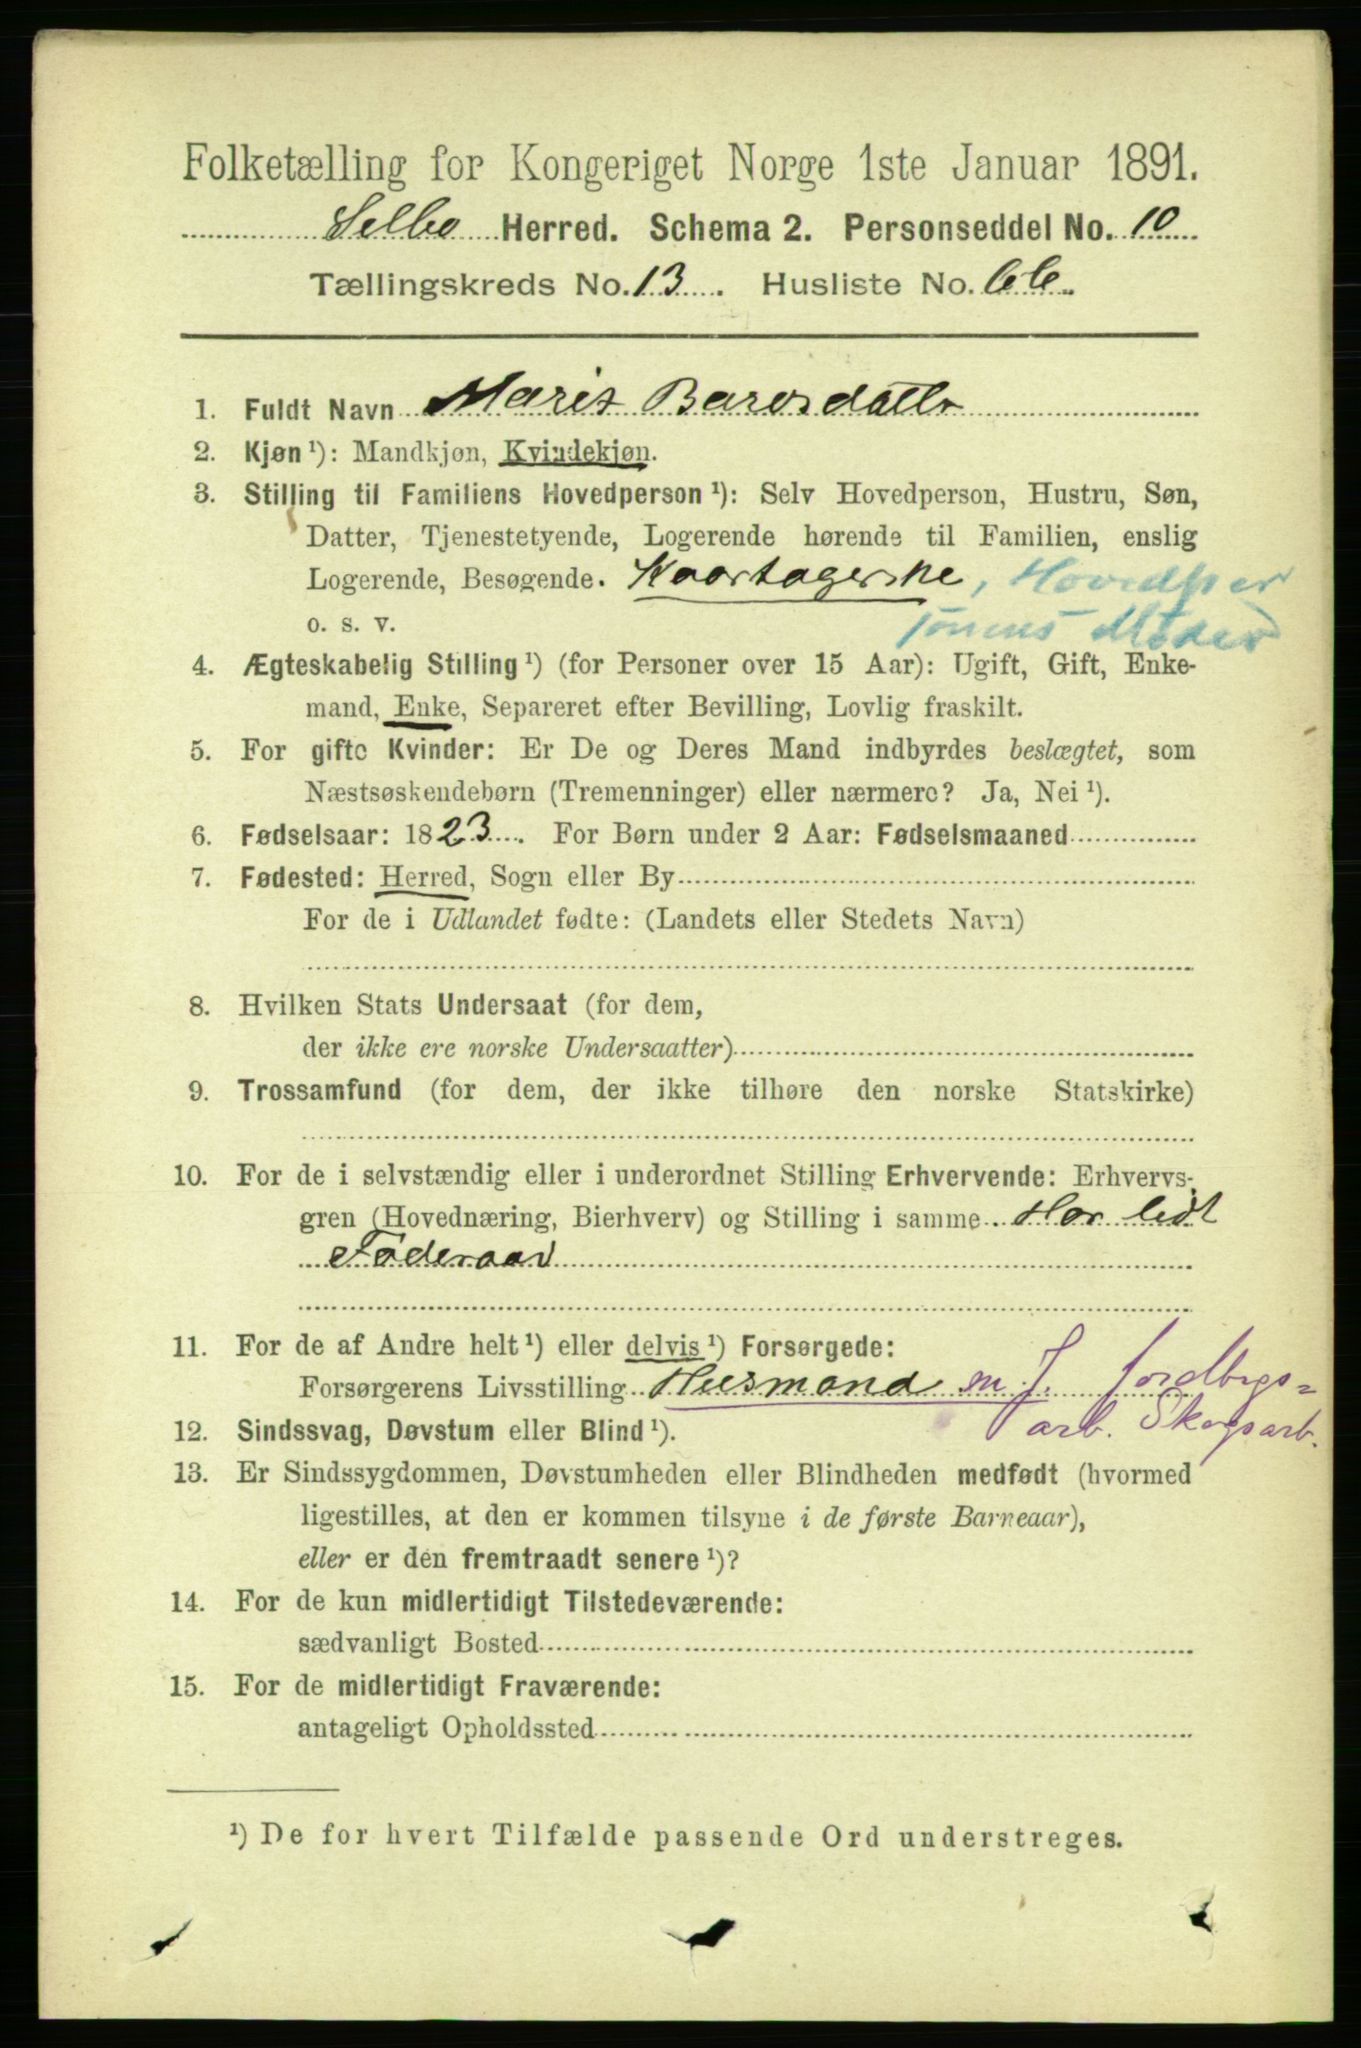 Folketælling for Kongeriget Norge 1ste Januar 1891.
Selbo Herred. Schema 2. Personseddel No. 10
Tællingskreds No. 13. Husliste No. 66.
1. Fuldt Navn Marit Barosdatter
2. Kjøn ¹): Mandkjøn, Kvindekjøn.
3. Stilling til Familiens Hovedperson ¹): Selv Hovedperson, Hustru, Søn,
Datter, Tjenestetyende, Logerende hørende til Familien, enslig
Logerende, Besøgende. Kaartagerske, Hovedper
o. s. v. sonens Moder
4. Ægteskabelig Stilling ¹) (for Personer over 15 Aar): Ugift, Gift, Enke-
mand, Enke, Separeret efter Bevilling, Lovlig fraskilt.
5. For gifte Kvinder: Er De og Deres Mand indbyrdes beslægtet, som
Næstsøskendebørn (Tremenninger) eller nærmere? Ja, Nei ¹).
6. Fødselsaar: 1823. For Børn under 2 Aar: Fødselsmaaned
7. Fødested: Herred, Sogn eller By
For de i Udlandet fødte: (Landets eller Stedets Navn)
8. Hvilken Stats Undersaat (for dem,
der ikke ere norske Undersaatter)
9. Trossamfund (for dem, der ikke tilhøre den norske Statskirke)
10. For de i selvstændig eller i underordnet Stilling Erhvervende: Erhvervs-
gren (Hovednæring, Bierhverv) og Stilling i samme Har lidt
Føderaad
11. For de af Andre helt ¹) eller delvis ¹) Forsørgede:
Forsørgerens Livsstilling Husmand m. J. Jordbrgs=
arb. Skogsarb.
12. Sindssvag, Døvstum eller Blind ¹).
13. Er Sindssygdommen, Døvstumheden eller Blindheden medfødt (hvormed
ligestilles, at den er kommen tilsyne i de første Barneaar),
eller er den fremtraadt senere ¹)?
14. For de kun midlertidigt Tilstedeværende:
sædvanligt Bosted
15. For de midlertidigt Fraværende:
antageligt Opholdssted
¹) De for hvert Tilfælde passende Ord understreges.